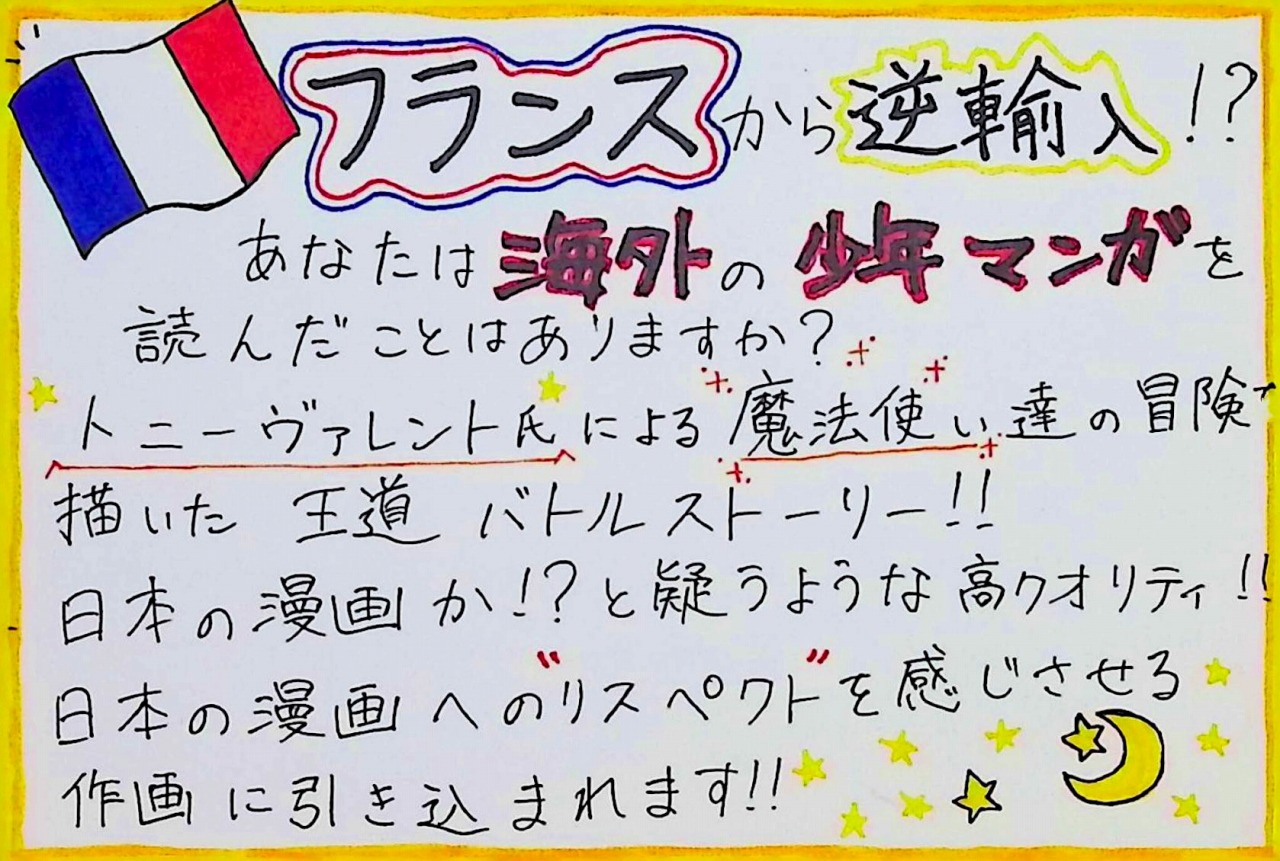 フランスから逆輸入!?
あなたは海外の少年マンガを
読んだことはありますか?
トニーヴァレント氏による魔法使い達の冒険
描いた 王道 バトルストーリー!!
日本の漫画か!?と疑うような高クオリティ!!
日本の漫画への"リスペクト"を感じさせる
作画に引き込まれます!!